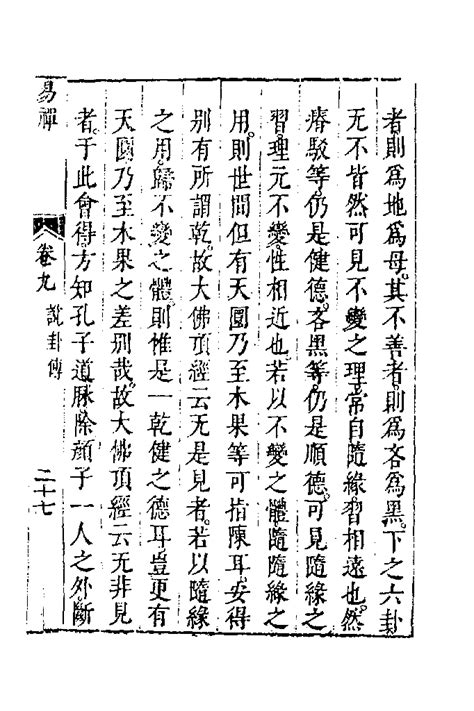 者則爲地爲母。其不善者。則爲吝爲黑。下之六卦
无不皆然可見不變之理。常自隨緣。習相遠也。然
瘠駁等仍是健德。吝黑等仍是順德。可見隨緣之
習。理元不變。性相近也。若以不變之體。隨隨緣之
用。則世間但有天圜乃至木果等可指陳耳。安得
別有所謂乾。故大佛頂經云无是見者。若以隨緣
之用。歸不變之體。則惟是一乾健之德耳。豈更有
天圜乃至木果之差別哉。故大佛頂經云无非見
者。于此會得。方知孔子道脉。除顏子一人之外。斷
易禪
卷九
說卦傳
二十七